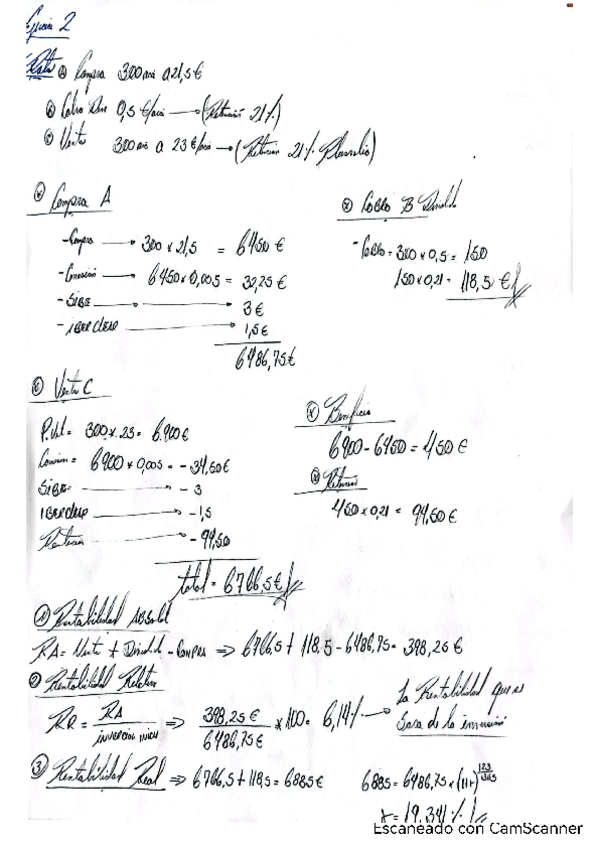 Ejercicio 2
Datos ⓐ Compra 300 acc a 21,5 €
ⓑ Cobro Div 0,5 €/acc → (Retención 21%)
ⓒ Venta 300 acc a 23 €/acc → (Retención 21% Plusvalía)
Compra A
- Compra → 300 x 21,5 = 6450 €
- Comisión → 6450 x 0,005 = 32,25 €
- SIBE → 3 €
- IBERCLEAR → 1,5 €
6486,75 €
Cobro B Divid
- Cobro = 300 x 0,5 = 150
150 x 0,21 = 118,5 €
ⓒ Venta C
P.Vet = 300 x 23 = 6.900 €
Comisión = 6900 x 0,005 = - 34,50 €
SIBE → - 3
IBERCLEAR → - 1,5
Retención → - 94,50
total = 6766,5 €
Beneficio
6900 - 6450 = 450 €
Retención
450 x 0,21 = 94,50 €
① Rentabilidad Absolut
RA = Venta + Dividend - Compra ⇒ 6766,5 + 118,5 - 6486,75 = 398,25 €
② Rentabilidad Relativa
RR = RA / inversión inicial ⇒ 398,25 € / 6486,75 € x 100 = 6,14% → La Rentabilidad que se
saca de la inversión
③ Rentabilidad Real ⇒ 6766,5 + 118,5 = 6885 € 6885 = 6486,75 x (1+r)^123/365
r = 19,341%
Escaneado con CamScanner